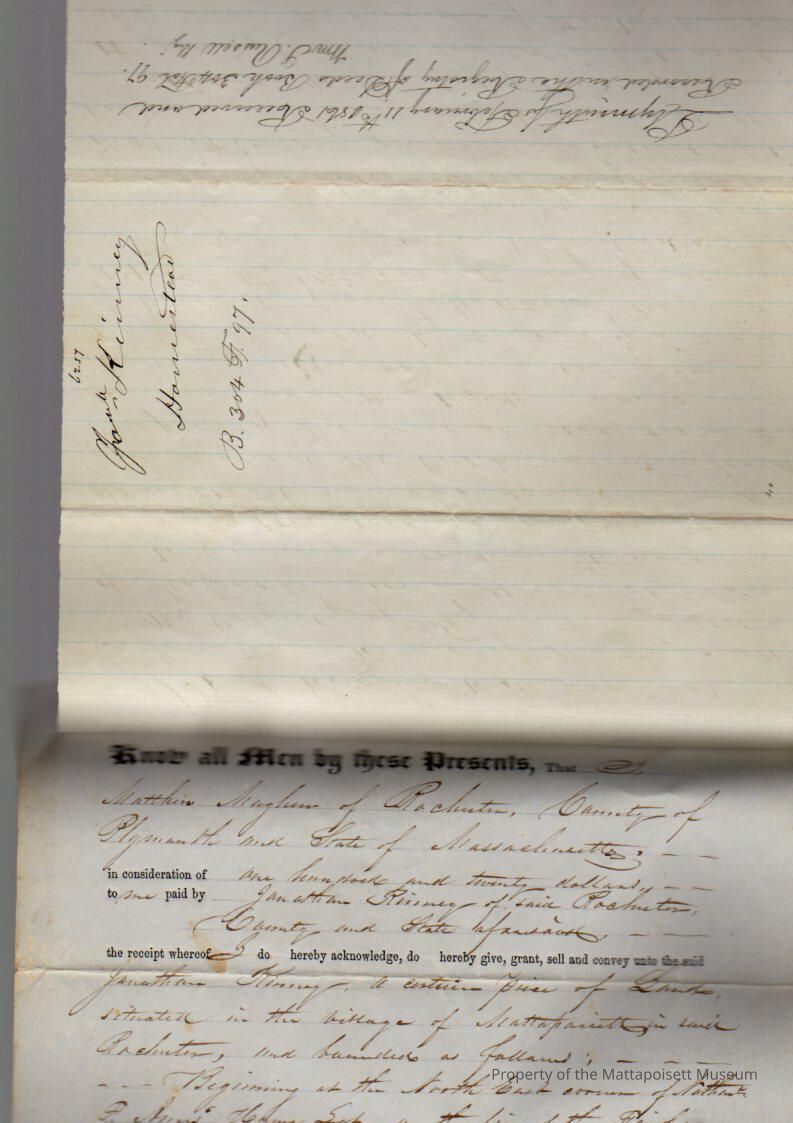 Plymouth ss February 11th 1861 Received and
Recorded in the Registry of Deeds Book 304 Fol 97.
Wm S. Russell Reg.
6257
Jonah Kinney
Homestead
B. 304 F. 97.
Know all Men by these Presents, That I
Matthew Mayhew of Rochester, County of
Plymouth and State of Massachusetts,
in consideration of one hundred and twenty dollars,
to me paid by Jonathan Kinney of said Rochester,
County and State aforesaid,
the receipt whereof I do hereby acknowledge, do hereby give, grant, sell and convey unto the said
Jonathan Kinney, a certain Piece of Land,
situated in the village of Mattapoisett, in said
Rochester, and bounded as follows;
Beginning at the North East corner of
House Lot,
Property of the Mattapoisett Museum